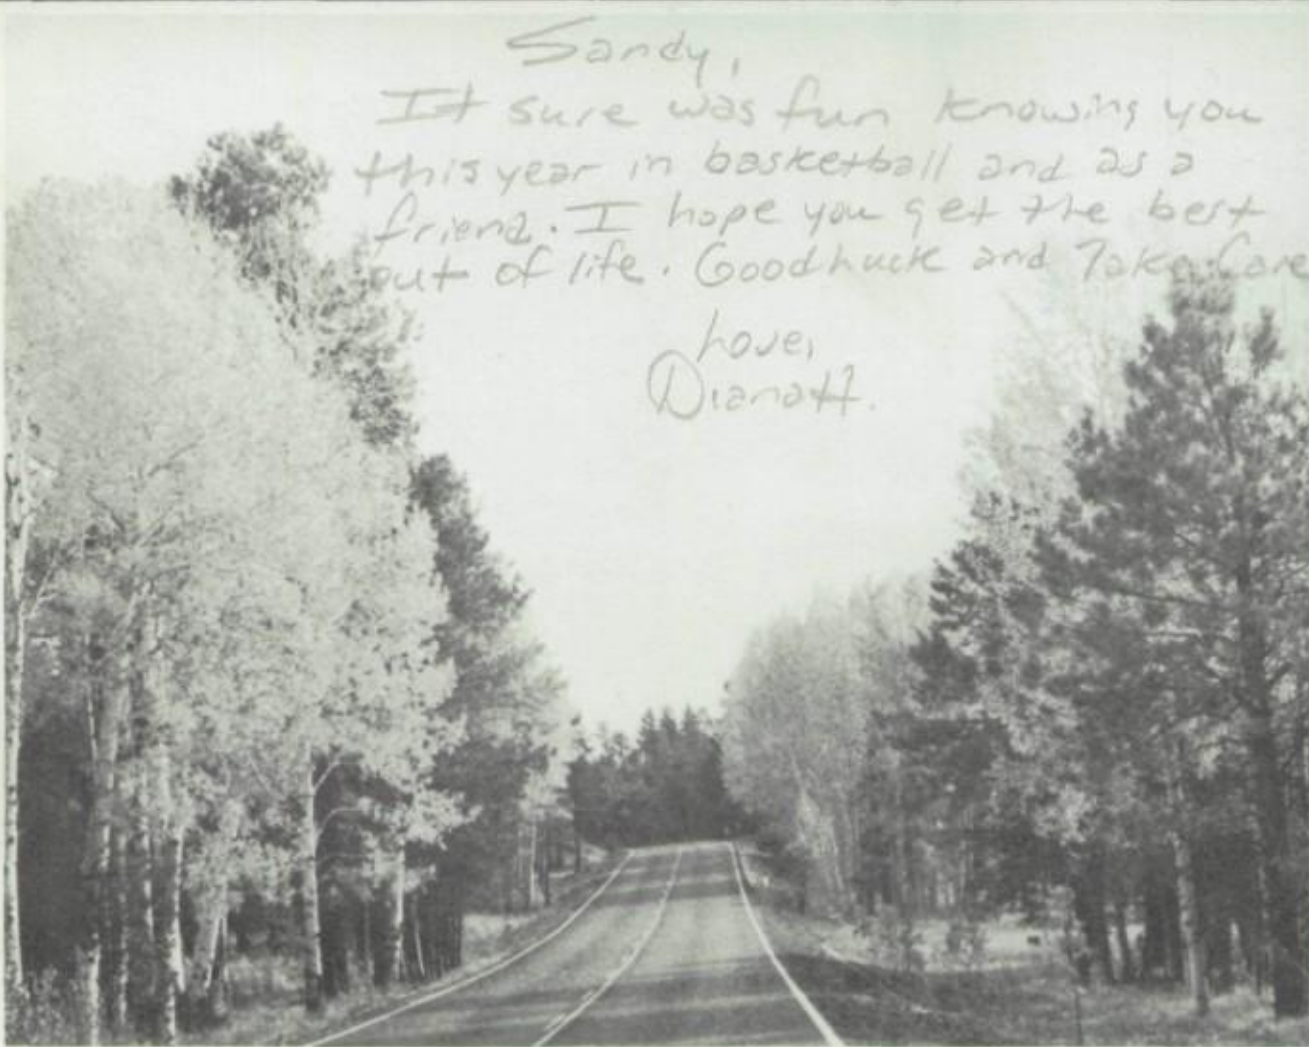 Sandy,
It sure was fun knowing you
this year in basketball and as a
friend. I hope you get the best
out of life. Good Luck and Take Care
Love,
Diana H.